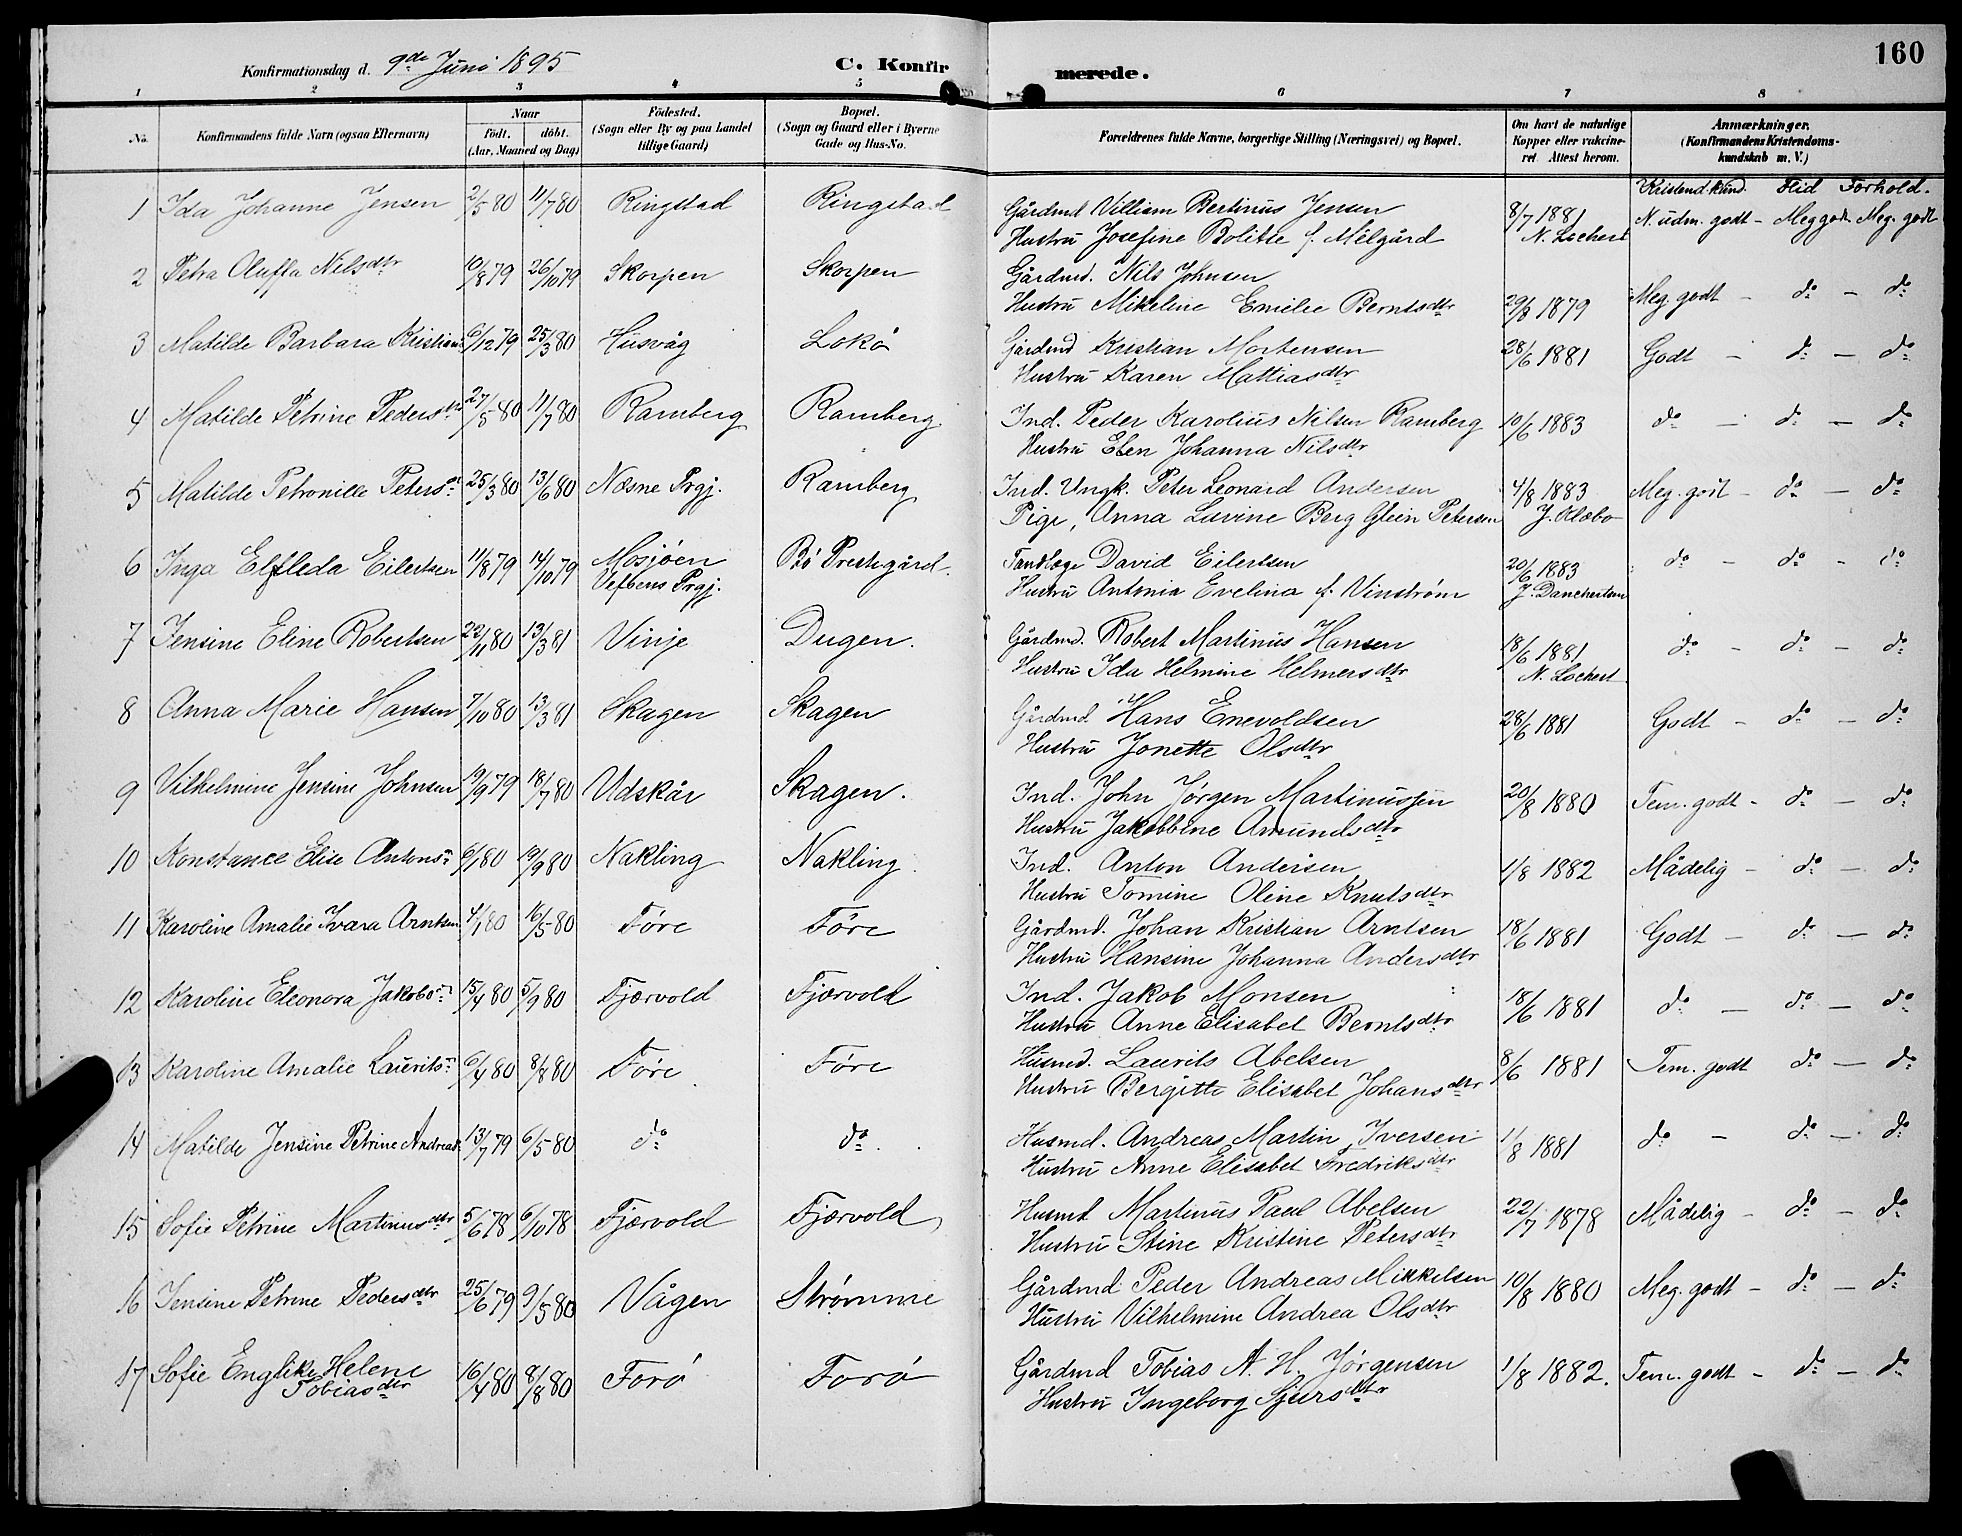 160
Konfirmationsdag d. 9de Juni 1895 C. Konfirmerede.
1 2 3 4 5 6 7 8
No. Konfirmandens fulde Navn (ogsaa Efternavn) Naar födt. döbt. (Aar, Maaned og Dag) Födested. (Sogn eller By og paa Landet tillige Gaard) Bopæl. (Sogn og Gaard eller i Byerne Gade og Hus-No. Forældrenes fulde Navne, borgerlige Stilling (Næringsvei) og Bopæl. Om havt de naturlige Kopper eller vakcineret. Attest herom. Anmærkninger. (Konfirmandens Kristendomskundskab m. V.)
Kristend.kund. Flid Forhold.
1 Ida Johanne Jensen 2/5 80 11/7 80 Ringstad Ringstad Gårdmd Villiam Bertinus Jensen 8/7 1881 N. udm. godt - Meg godt Meg. godt
Hustru Josefine Bolitte f. Melgård N. Lochert
2 Petra Oluffa Nilsdtr 19/8 79 26/10 79 Skorpen Skorpen Gårdmd. Nils Johnsen
Hustru Mikeline Emelie Berntsdtr 29/8 1879 Meg. godt - do - do
3 Matilde Barbara Kristians 6/12 79 25/3 80 Husvåg Lokö Gårdmd Kristian Mortensen 28/6 1881 Godt - do - do
Hustru Karen Mattiasdtr
4 Matilde Petrine Pedersdtr 27/5 80 11/7 80 Ramberg Ramberg Ind. Peder Karolius Nilsen Ramberg 10/6 1883 do - do - do
Hustru Elen Johanna Nilsdtr
5 Matilde Petronille Petersdtr 25/3 80 13/6 80 Næsne Prgj. Ramberg Ind. Ungk. Peter Leonard Andersen 4/8 1883 Meg. godt - do - do
Pige, Anna Lavine Berg Glein Petersen J. Klæbo
6 Inga Elfleda Eilertsen 11/8 79 14/10 79 Mosjøen Bö Prestegård. Tandlæge David Eilertsen 20/6 1883 do - do - do
Vefsens Prgj. Hustru Antonia Evelina f. Vinstrøm J. Danchertsen
7 Jensine Eline Robertsen 22/11 80 13/3 81 Vinje Dugen. Gårdmd. Robert Martinus Hansen 18/6 1881 do - do - do
Hustru Ida Helmine Helmersdtr N. Lochert
8 Anna Marie Hansen 7/10 80 13/3 81 Skagen Skagen Gårdmd Hans Enevoldsen 28/6 1881 Godt - do - do
Hustru Jonette Olsdtr
9 Vilhelmine Jensine Johnsen 19/9 79 18/7 80 Udskår Skagen. Ind. John Jørgen Martinussen 20/8 1880 Tem. godt - do - do
Hustru Jakobbine Amundsdtr
10 Konstance Elise Antons 6/1 80 19/9 80 Nakling Nakling Ind. Anton Andersen 1/8 1882 Mådelig - do - do
Hustru Tomine Oline Knutsdtr
11 Karoline Amalie Ivara Arntsen 4/1 80 16/5 80 Føre Føre Gårdmd. Johan Kristian Arntsen 18/6 1881 Godt - do - do
Hustru Hansine Johanna Andersdtr
12 Karoline Eleonora Jakobs 15/4 80 5/9 80 Fjærvold Fjærvold Ind. Jakob Monsen 18/6 1881 do - do - do
Hustru Anne Elisabet Berntsdtr
13 Karoline Amalie Laurits 6/4 80 8/8 80 Føre Føre Husmd. Laurits Abelsen 8/6 1881 Tem. godt do - do
Hustru Bergitte Elisabet Johansdtr
14 Matilde Jensine Petrine Andreas 13/7 79 6/5 80 do do Husmd. Andreas Martin Iversen 1/8 1881 do - do - do
Hustru Anne Elisabet Fredriksdtr
15 Sofie Petrine Martinusdtr 5/6 78 6/10 78 Fjærvold Fjærvold Husmd Martinus Paul Abelsen 22/7 1878 Mådelig - do - do
Hustru Stine Kristine Petersdtr
16 Jensine Petrine Pedersdtr 25/6 79 9/5 80 Vågen Strømme Gårdmd Peder Andreas Mikkelsen 10/8 1880 Meg. godt - do - do
Hustru Vilhelmine Andrea Olsdtr
17 Sofie Englike Helene 16/4 80 8/8 80 Forö Forö Gårdmd Tobias N. H. Jørgensen 1/8 1882. Tem. godt - do - do
Tobiasdtr Hustru Ingeborg Sjursdtr